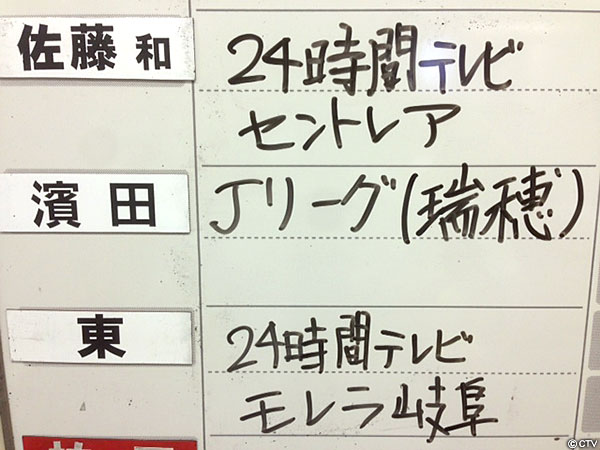 佐藤 和
24時間テレビ
セントレア
濱田
Jリーグ(瑞穂)
東
24時間テレビ
モレラ岐阜
©CTV